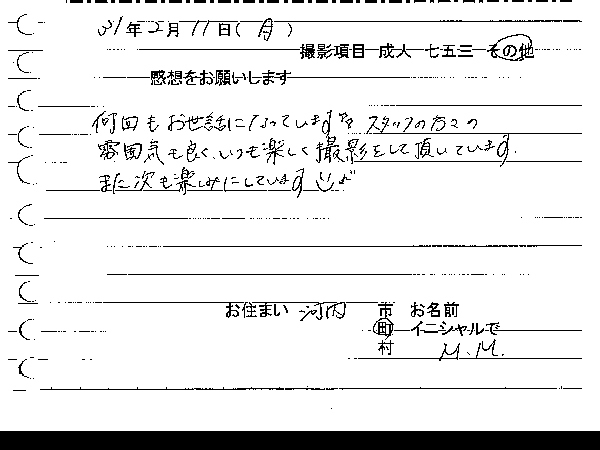 31年2月11日(月)
撮影項目 成人 七五三 その他
感想をお願いします
何回もお世話になっていますが スタッフの方々の
雰囲気も良く、いつも楽しく撮影をして頂いています。
また次も楽しみにしています
お住まい 河内 市 お名前
町 イニシャルで
村 M.M.